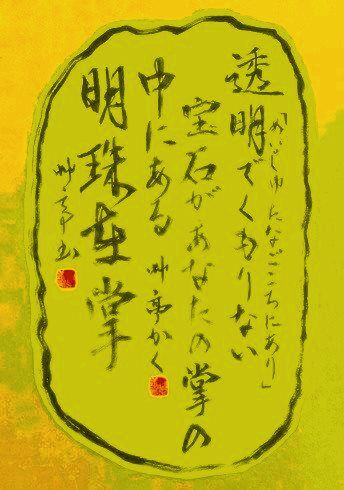 「めいじゅ たなごころにあり」
透明でくもりない
宝石があなたの掌の
中にある 艸亭かく
明珠在掌
艸亭